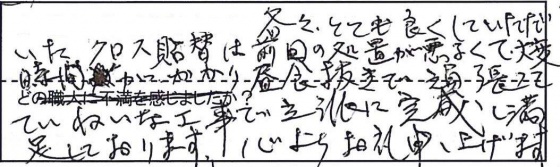 各々、とても良くしていただ
いた クロス貼替は前回の処置が悪るくて大変
時間がかかり昼食抜きで頑張って
どの職人に不満を感じましたか?
ていねいな工事で立派に完成し満
足しております。心よりお礼申し上げます